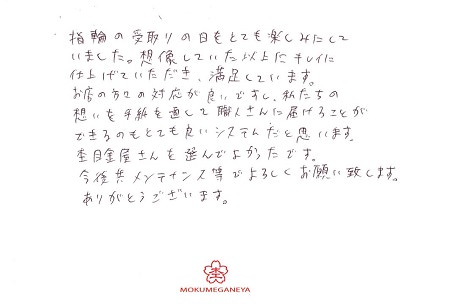 指輪の受取りの日もとても楽しみにして
いました。想像していた以上にキレイに
仕上げていただき、満足しています。
お店の方の対応が良いですし、私たちの
想いを手紙を通して職人さんに届けることが
できるのもとても良いシステムだと思います。
杢目金屋さんを選んでよかったです。
今後共メンテナンス等でよろしくお願い致します。
ありがとうございます。
杢
MOKUMEGANEYA